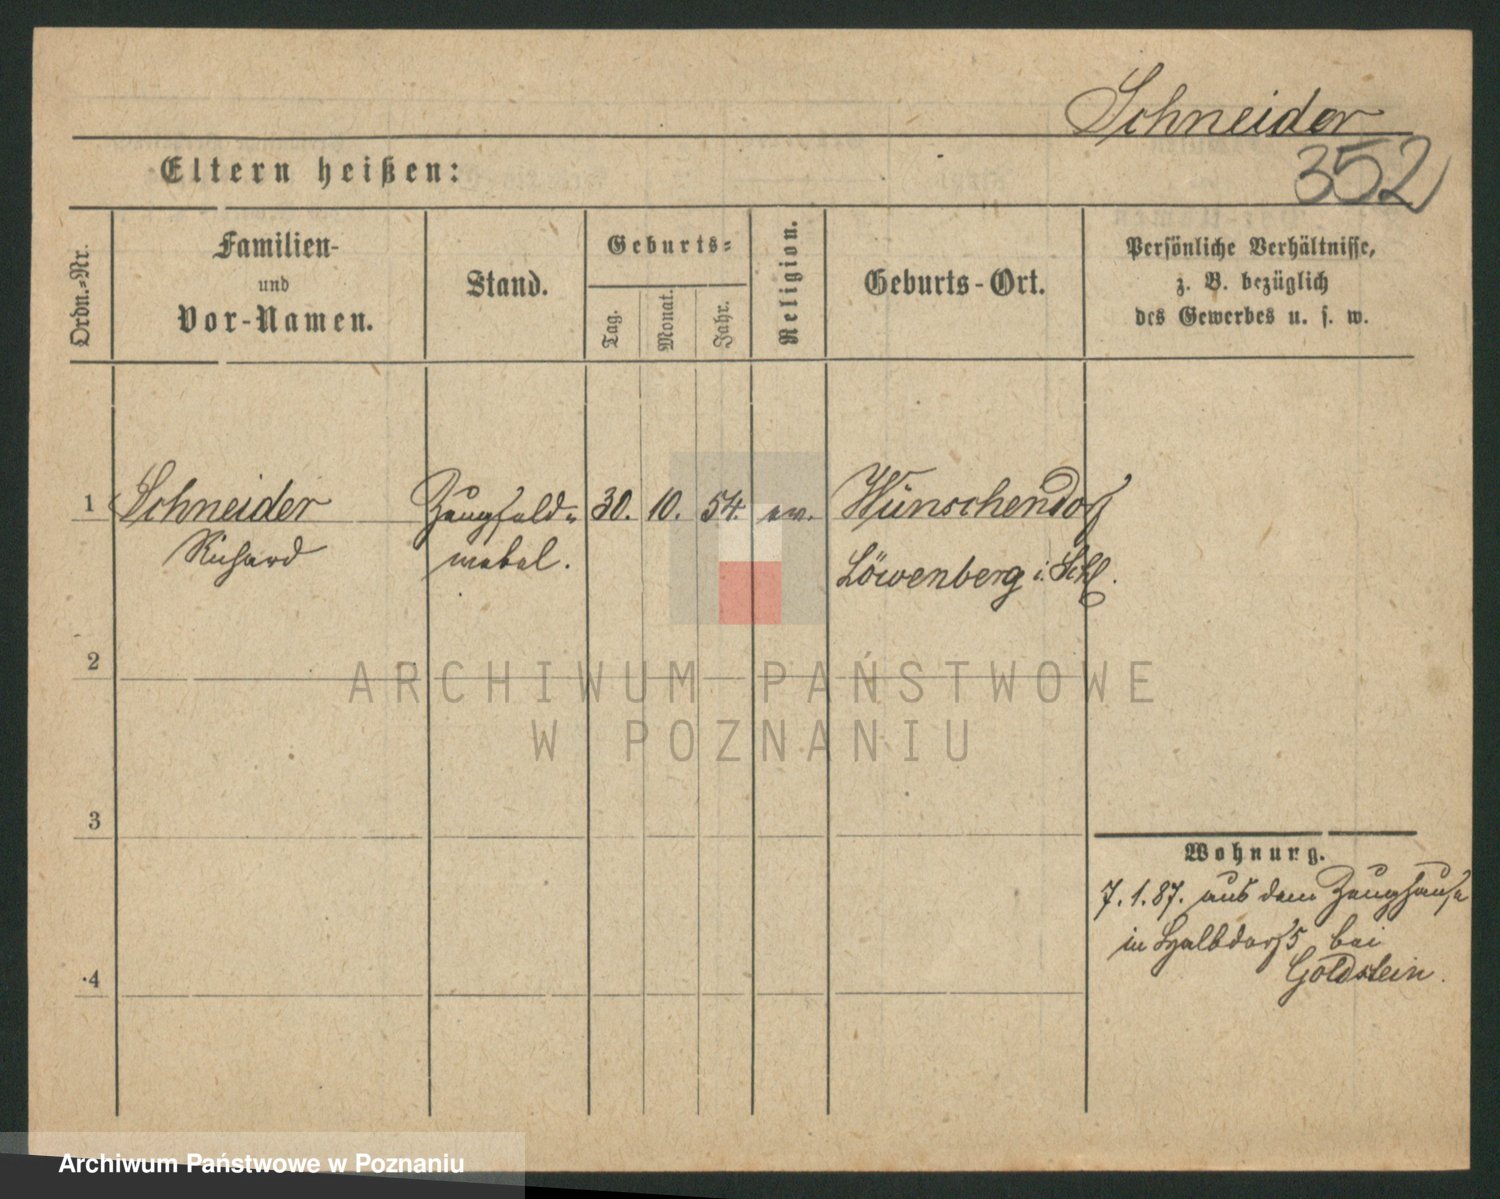 Schneider
352
Eltern heißen:
Ordn.-Nr.
Familien-
und
Vor-Namen.
Stand.
Geburts-
Tag.
Monat.
Jahr.
Religion.
Geburts-Ort.
Persönliche Verhältnisse,
z. B. bezüglich
des Gewerbes u. s. w.
1 Schneider Zeugfeld- 30. 10. 54. ev. Wünschendorf
Richard webel. Löwenberg i. Schl.
2
3
4
ARCHIWUM PAŃSTWOWE
W POZNANIU
Wohnung.
7. 1. 87. aus dem Zeughause
in Halbdorf 5 bei
Goldstein.
Archiwum Państwowe w Poznaniu